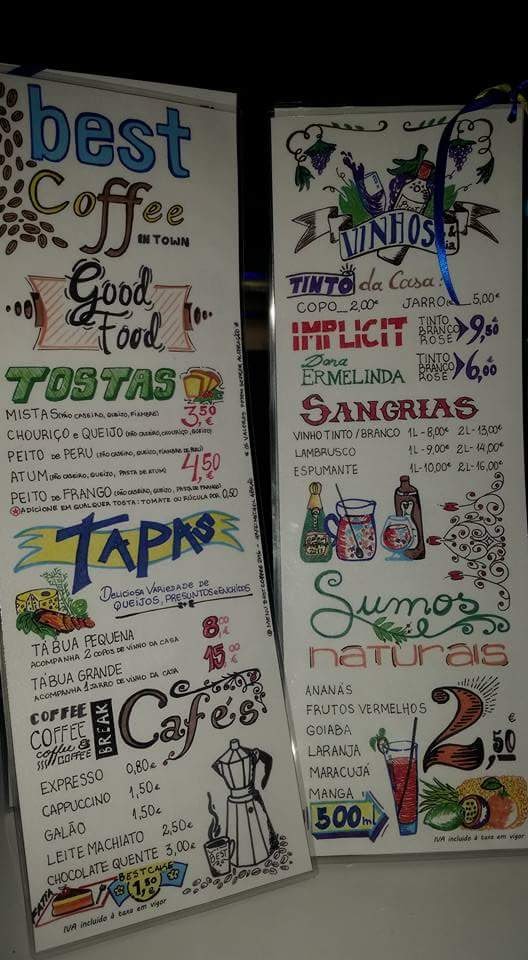 best
Coffee
IN TOWN
Good
Food
TOSTAS
MISTAS (PÃO CASEIRO, QUEIJO, FIAMBRE)
3,50 €
CHOURIÇO e QUEIJO (PÃO CASEIRO, CHOURIÇO, QUEIJO)
PEITO de PERU (PÃO CASEIRO, QUEIJO, FIAMBRE DE PERU)
4,50 €
ATUM (PÃO CASEIRO, QUEIJO, PASTA DE ATUM)
PEITO de FRANGO (PÃO CASEIRO, QUEIJO, PASTA DE FRANGO)
ADICIONE EM QUALQUER TOSTA: TOMATE OU RÚCULA POR 0,50
TAPAS
DELICIOSA VARIEDADE DE
QUEIJOS, PRESUNTOS e ENCHIDOS
TÁBUA PEQUENA 8,00 €
ACOMPANHA 2 COPOS DE VINHO DA CASA
TÁBUA GRANDE 15,00 €
ACOMPANHA 1 JARRO DE VINHO DA CASA
COFFEE
COFFEE
coffee &
COFFEE
BREAK
Cafés
EXPRESSO 0,80€
CAPPUCCINO 1,50€
GALÃO 1,50€
LEITE MACHIATO 2,50€
CHOCOLATE QUENTE 3,00€
BEST
FATIA
BESTCAKE
1,50 €
IVA incluído à taxa em vigor
* OS VALORES PODEM SOFRER ALTERAÇÃO *
VINHOS
& Cia
TINTO da Casa:
COPO_2,00€ JARRO_5,00€
IMPLICIT
TINTO
BRANCO
ROSE
9,50
Dona
ERMELINDA
TINTO
BRANCO
ROSE
6,00
SANGRIAS
VINHO TINTO / BRANCO 1L-8,00€ 2L-13,00€
LAMBRUSCO 1L-9,00€ 2L-14,00€
ESPUMANTE 1L-10,00€ 2L-16,00€
Sumos
naturais
ANANÁS
FRUTOS VERMELHOS
GOIABA
LARANJA
MARACUJÁ
MANGA
2,50 €
500ml
IVA incluído à taxa em vigor